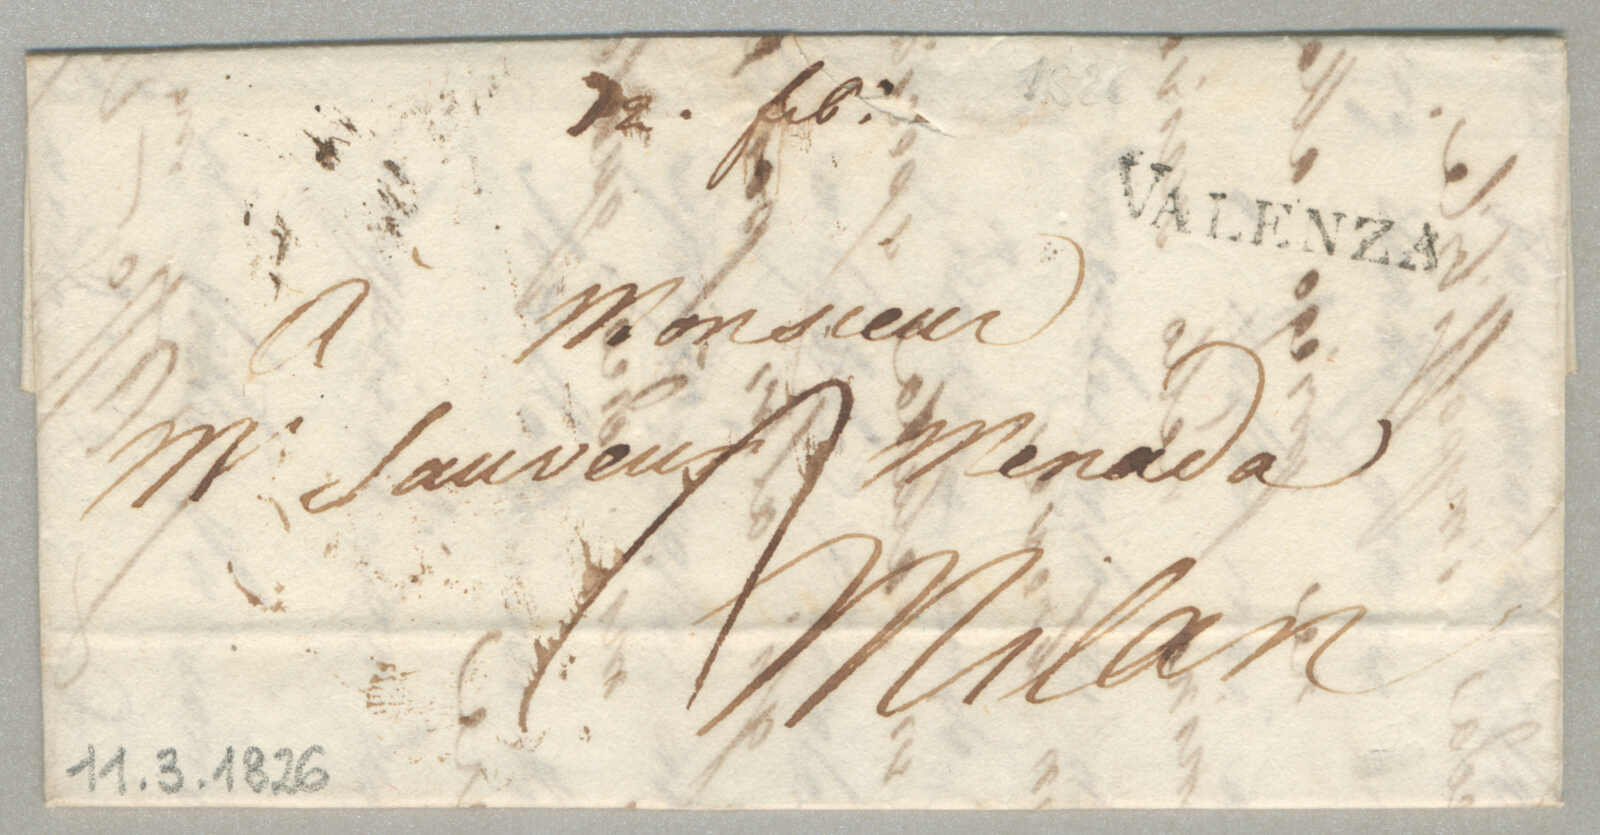 22. feb:
1826
VALENZA
à Monsieur
Mr Sauveur Menada
Milan
11.3.1826